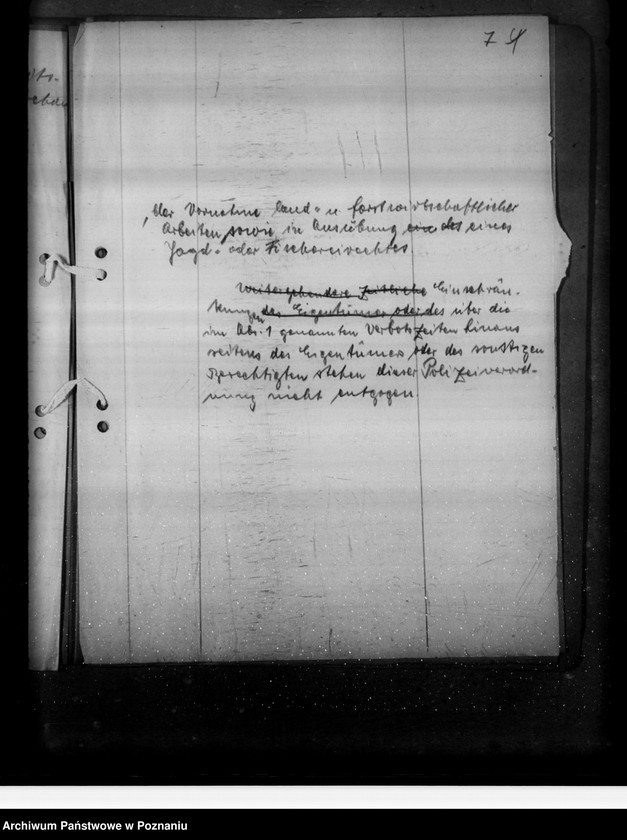 7
der Vornahme land- u forstwirtschaftlicher
Arbeiten, sowie in Ausübung ein des eines
Jagd- oder Fischereirechtes.
Weitergehendere zeitliche Einschrän-
kungen des Eigentümers oder des über die
im Abs. 1 genannten Verbotszeiten hinaus
seitens des Eigentümers oder des sonstigen
Berechtigten stehen dieser Polizeiverord-
nung nicht entgegen.
Archiwum Państwowe w Poznaniu